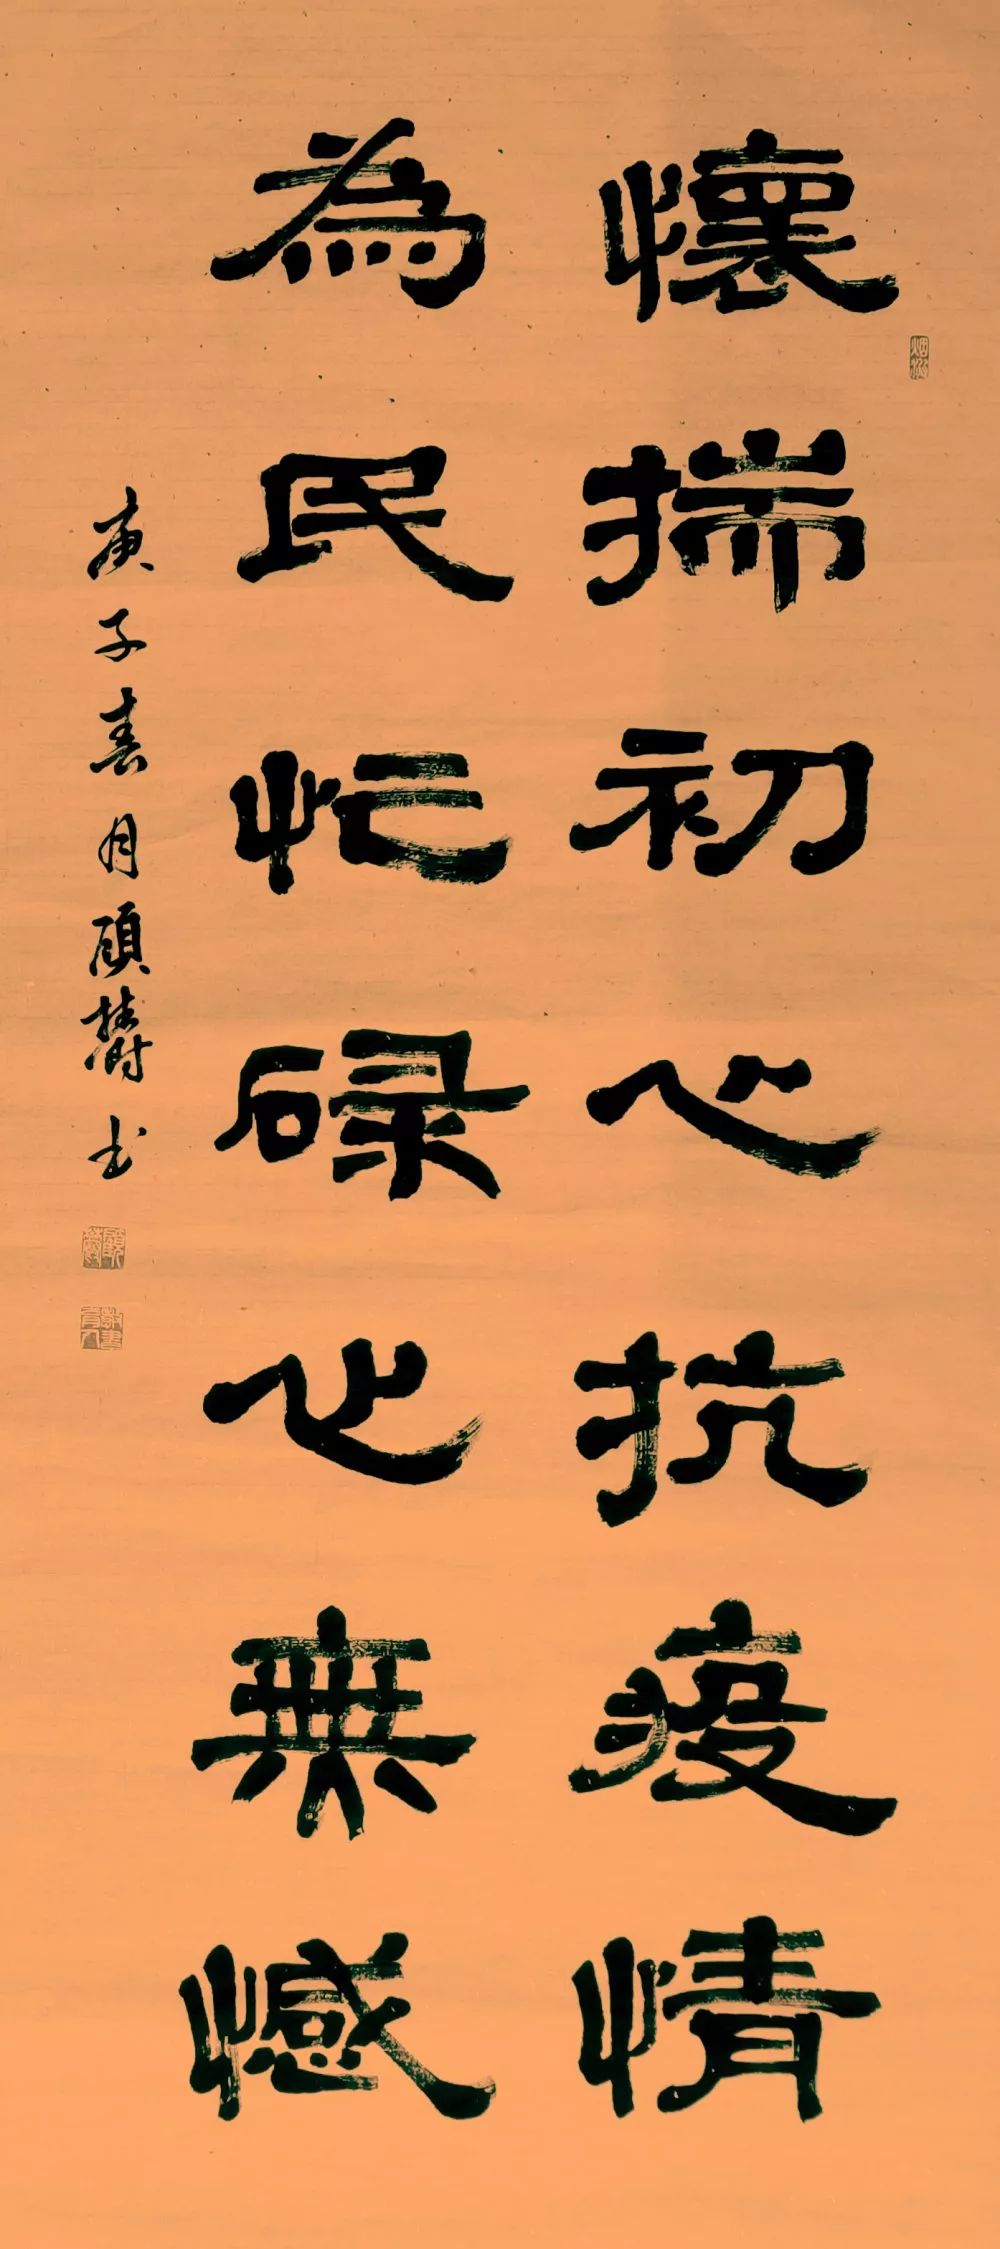 懷揣初心抗疫情
為民忙碌心無憾
庚子春月顧書